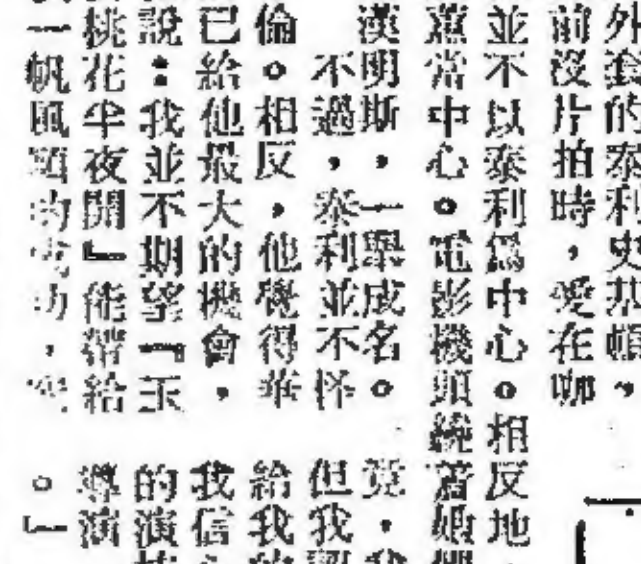 外套的泰利史基帽，
前沒片拍時，愛在咖
並不以泰利爲中心。相反地
薰當中心。電影機頭繞着
漢明斯，一舉成名。
不過，泰利並不怪
倫。相反，他覺得華
已給他最大的機會，
說：我並不期望『玉
桃花半夜開』能帶給
一帆風順的成功，
竟，我
但我認
給我的
我信心
的演技
導演
。』